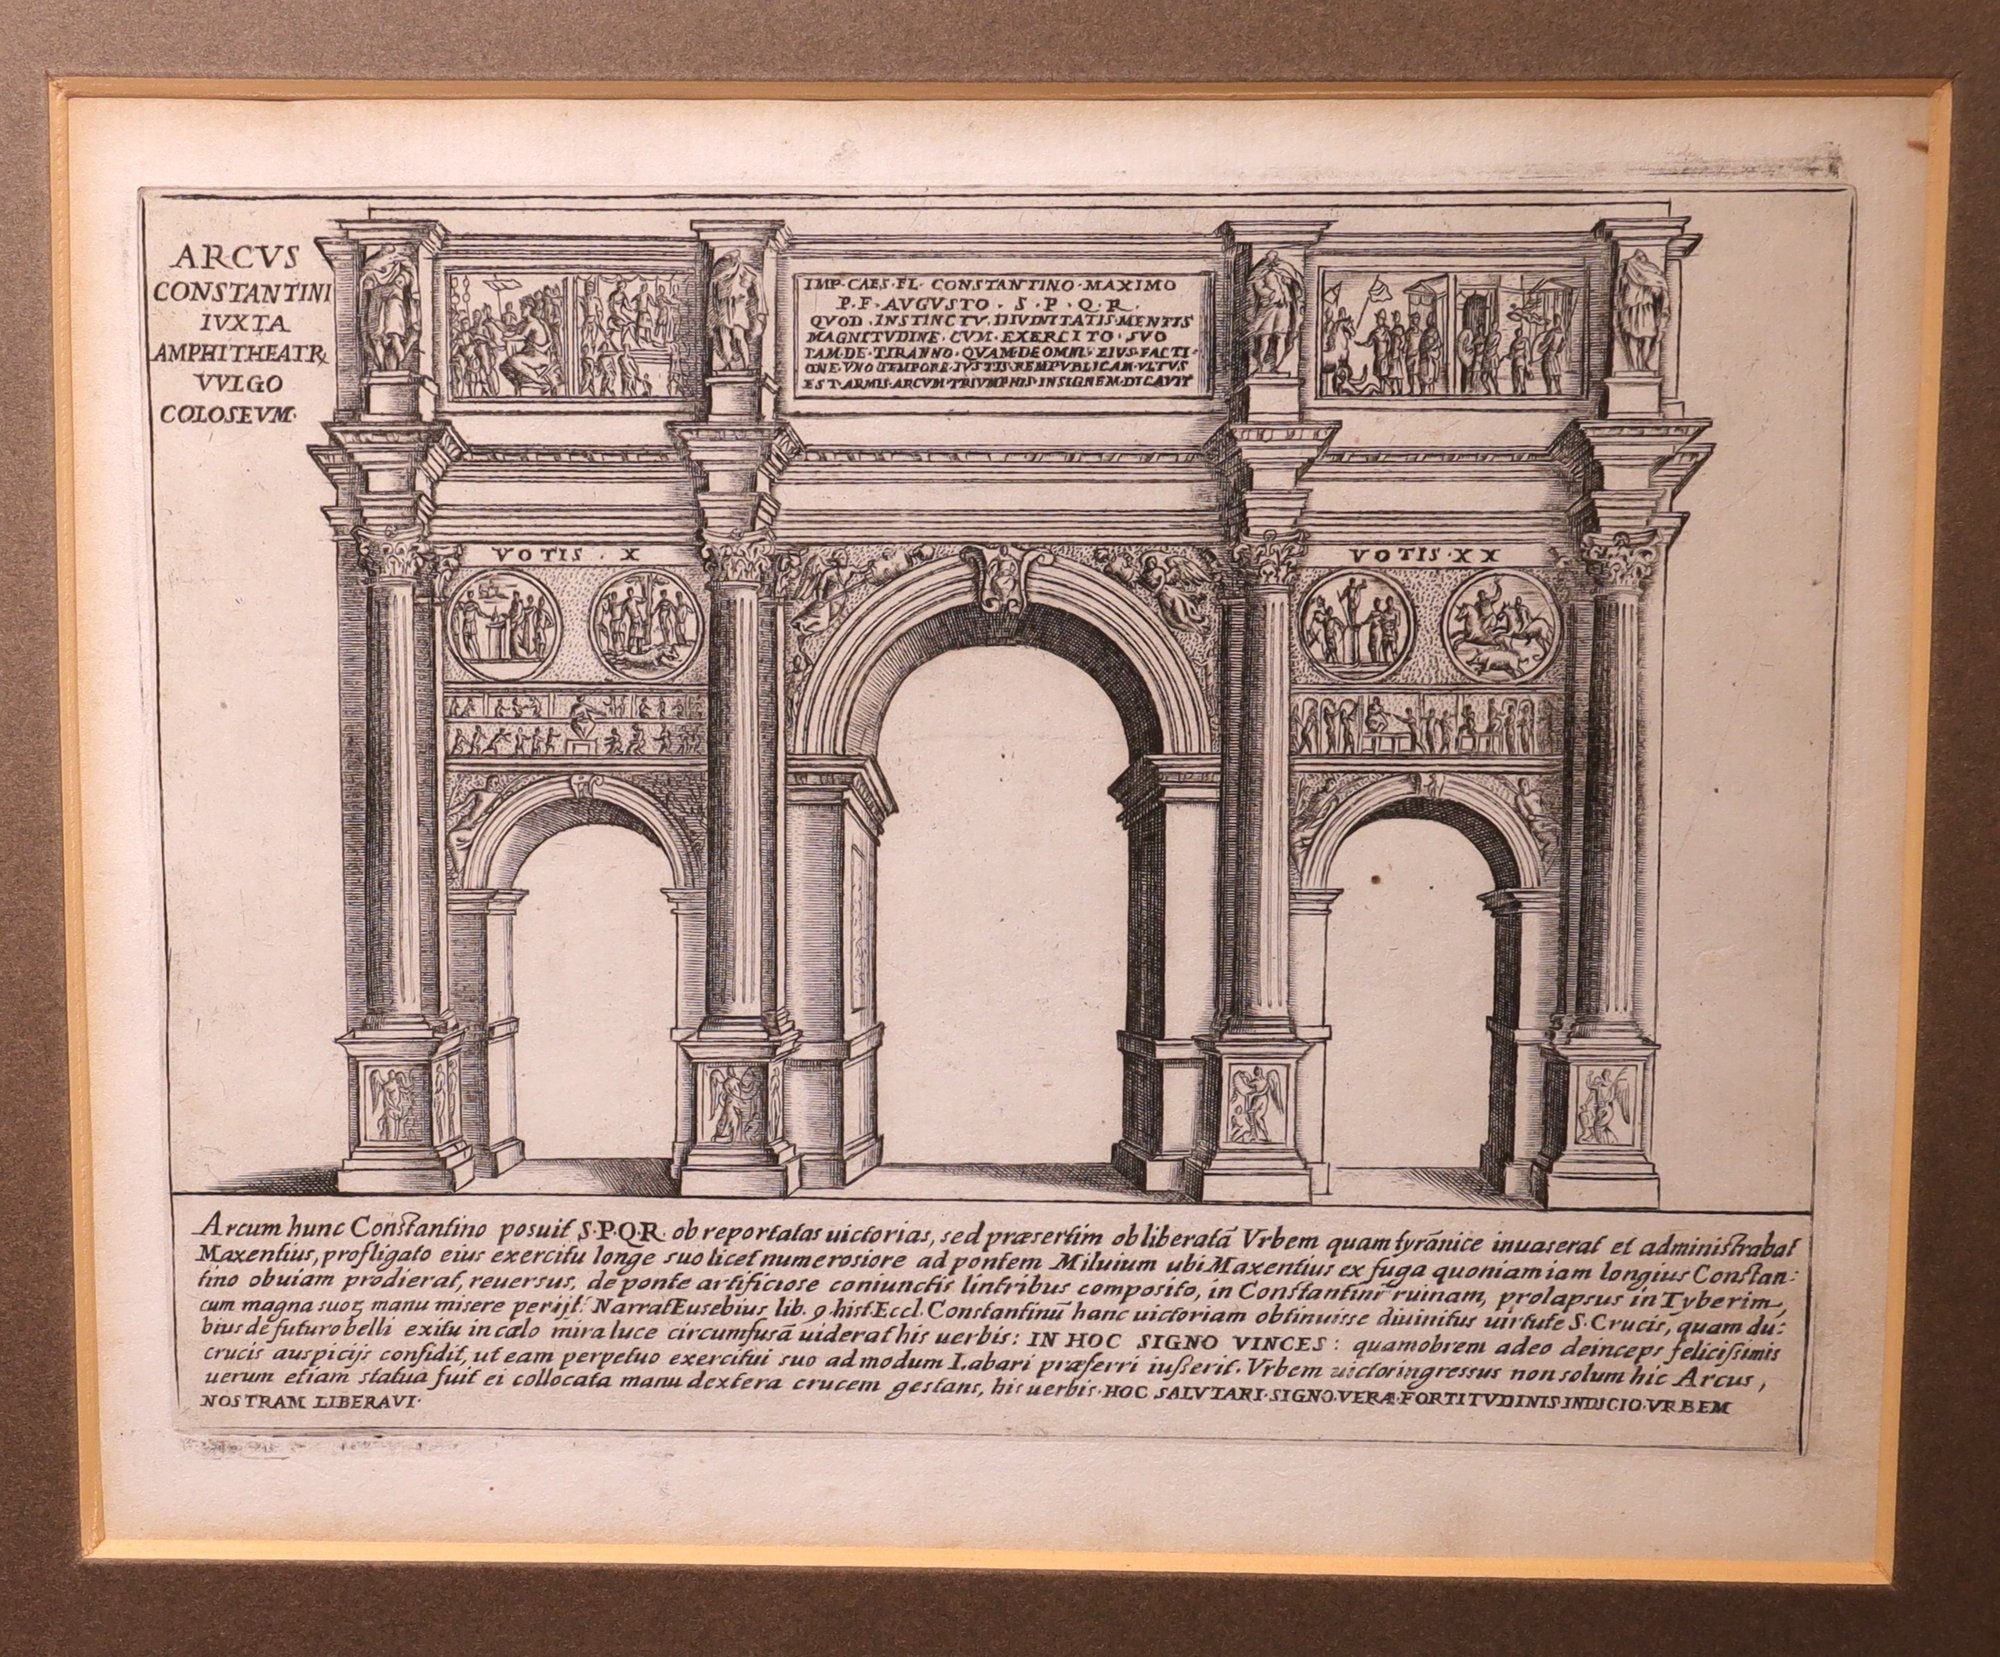 ARCVS
CONSTANTINI
IVXTA
AMPHITHEATR
VVLGO
COLOSEVM·
IMP·CAES·FL· CONSTANTINO·MAXIMO
P·F·AVGVSTO·S·P·Q·R·
QVOD·INSTINCTV·DIVINITATIS·MENTIS
MAGNITVDINE·CVM·EXERCITO·SVO
TAM·DE·TIRANNO·QVAM·DE OMNI·EIVS·FACTI·
ONE·VNO TEMPORE·IVSTIS·REMPVBLICAM·VLTVS
EST·ARMIS·ARCVM·TRIVMPHIS·INSIGNEM·DICAVIT
VOTIS · X
VOTIS·XX
Arcum hunc Constantino posuit S·P·Q·R· ob reportatas uictorias, sed præsertim ob liberatã Vrbem quam tyrãnice inuaserat et administrabat
Maxentius, profligato eius exercitu longe suo licet numerosiore ad pontem Miluium ubi Maxentius ex fuga quoniam iam longius Constan:
tino obuiam prodierat, reuersus, de ponte artificiose coniunctis lintribus composito, in Constantini ruinam, prolapsus in Tyberim,
cum magna suoꝝ manu misere perijt. Narrat Eusebius lib. 9. hist. Eccl. Constantinũ hanc uictoriam obtinuisse diuinitus uirtute S. Crucis, quam du:
bius de futuro belli exitu in cælo mira luce circumfusã uiderat his uerbis: IN HOC SIGNO VINCES: quamobrem adeo deinceps felicissimis
crucis auspicijs confidit, ut eam perpetuo exercitui suo ad modum Labari præferri iusserit. Vrbem uictor ingressus non solum hic Arcus,
uerum etiam statua fuit ei collocata manu dextera crucem gestans, his uerbis·HOC SALVTARI·SIGNO·VERÆ·FORTITVDINIS·INDICIO·VRBEM
NOSTRAM LIBERAVI·